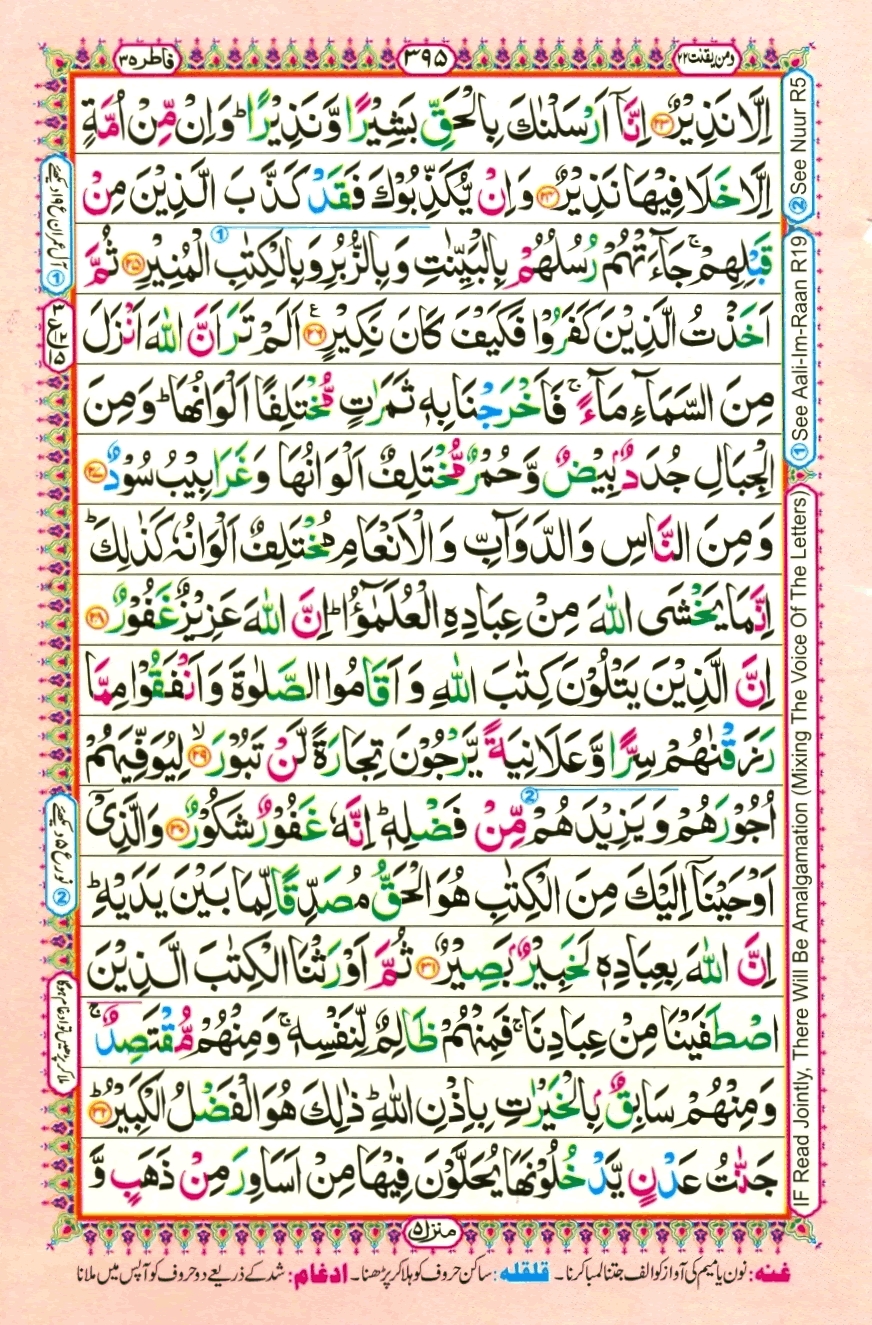 ومن يقنت ٢٢
٣٩٥
فاطر ٣٥
اِلَّا نَذِيْرٌ ﴿۲۳﴾ اِنَّاۤ اَرْسَلْنٰكَ بِالْحَقِّ بَشِيْرًا وَّ نَذِيْرًا ؕ وَ اِنْ مِّنْ اُمَّةٍ
اِلَّا خَلَا فِيْهَا نَذِيْرٌ ﴿۲۴﴾ وَ اِنْ يُّكَذِّبُوْكَ فَقَدْ كَذَّبَ الَّذِيْنَ مِنْ
قَبْلِهِمْ ۚ جَآءَتْهُمْ رُسُلُهُمْ بِالْبَيِّنٰتِ وَ بِالزُّبُرِ وَ بِالْكِتٰبِ الْمُنِيْرِ ﴿۲۵﴾ ثُمَّ
اَخَذْتُ الَّذِيْنَ كَفَرُوْا فَكَيْفَ كَانَ نَكِيْرِ ﴿۲۶﴾ اَلَمْ تَرَ اَنَّ اللّٰهَ اَنْزَلَ
مِنَ السَّمَآءِ مَآءً ۚ فَاَخْرَجْنَا بِهٖ ثَمَرٰتٍ مُّخْتَلِفًا اَلْوَانُهَا ؕ وَ مِنَ
الْجِبَالِ جُدَدٌۢ بِيْضٌ وَّ حُمْرٌ مُّخْتَلِفٌ اَلْوَانُهَا وَ غَرَابِيْبُ سُوْدٌ ﴿۲۷﴾
وَ مِنَ النَّاسِ وَ الدَّوَآبِّ وَ الْاَنْعَامِ مُخْتَلِفٌ اَلْوَانُهٗ كَذٰلِكَ ؕ
اِنَّمَا يَخْشَى اللّٰهَ مِنْ عِبَادِهِ الْعُلَمٰٓؤُا ؕ اِنَّ اللّٰهَ عَزِيْزٌ غَفُوْرٌ ﴿۲۸﴾
اِنَّ الَّذِيْنَ يَتْلُوْنَ كِتٰبَ اللّٰهِ وَ اَقَامُوا الصَّلٰوةَ وَ اَنْفَقُوْا مِمَّا
رَزَقْنٰهُمْ سِرًّا وَّ عَلَانِيَةً يَّرْجُوْنَ تِجَارَةً لَّنْ تَبُوْرَ ﴿۲۹﴾ۙ لِيُوَفِّيَهُمْ
اُجُوْرَهُمْ وَ يَزِيْدَهُمْ مِّنْ فَضْلِهٖ ؕ اِنَّهٗ غَفُوْرٌ شَكُوْرٌ ﴿۳۰﴾ وَ الَّذِيْۤ
اَوْحَيْنَاۤ اِلَيْكَ مِنَ الْكِتٰبِ هُوَ الْحَقُّ مُصَدِّقًا لِّمَا بَيْنَ يَدَيْهِ ؕ
اِنَّ اللّٰهَ بِعِبَادِهٖ لَخَبِيْرٌۢ بَصِيْرٌ ﴿۳۱﴾ ثُمَّ اَوْرَثْنَا الْكِتٰبَ الَّذِيْنَ
اصْطَفَيْنَا مِنْ عِبَادِنَا ۚ فَمِنْهُمْ ظَالِمٌ لِّنَفْسِهٖ ۚ وَ مِنْهُمْ مُّقْتَصِدٌ ۚ
وَ مِنْهُمْ سَابِقٌۢ بِالْخَيْرٰتِ بِاِذْنِ اللّٰهِ ؕ ذٰلِكَ هُوَ الْفَضْلُ الْكَبِيْرُ ﴿۳۲﴾ؕ
جَنّٰتُ عَدْنٍ يَّدْخُلُوْنَهَا يُحَلَّوْنَ فِيْهَا مِنْ اَسَاوِرَ مِنْ ذَهَبٍ وَّ
② See Nuur R5
① See Aali-Im-Raan R19
IF Read Jointly, There Will Be Amalgamation (Mixing The Voice Of The Letters)
① آل عمران ع ١٩ دیکھئے
② نور ع ٥ دیکھئے
ملا کر پڑھیں تو ادغام ہوگا
منزل ٥
غنه: نون یا میم کی آواز کو الف جتنا لمبا کرنا۔ قلقله: ساکن حروف کو ہلا کر پڑھنا۔ ادغام: شد کے ذریعے دو حروف کو آپس میں ملانا